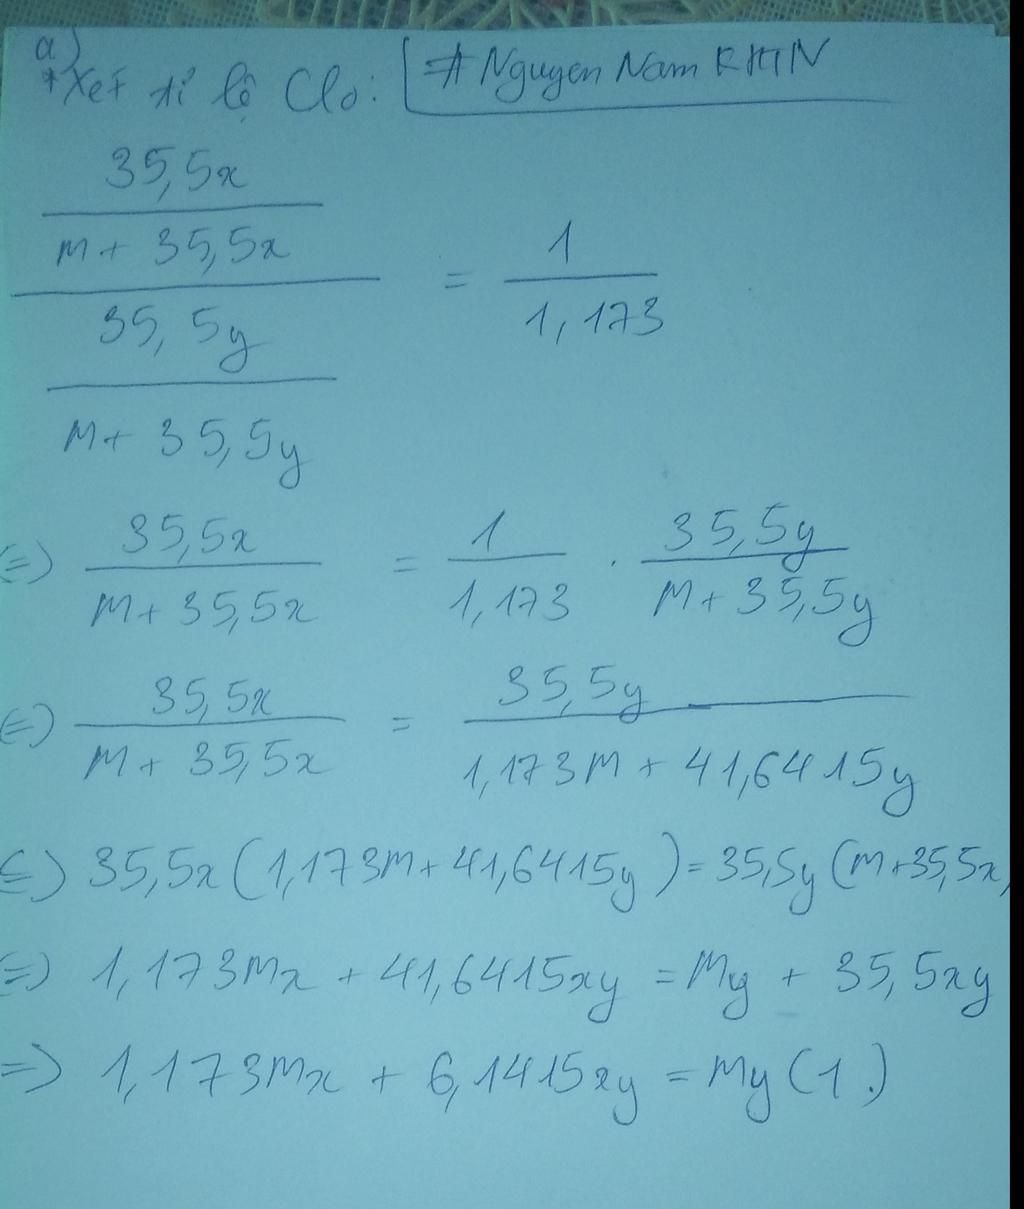 a)
*Xét tỉ lệ Clo: #Nguyen Nam KHTN
35,5x
m + 35,5x
35,5y
m + 35,5y
= 1
1,173
(=) 35,5x / m + 35,5x = 1 / 1,173 . 35,5y / m + 35,5y
(=) 35,5x / m + 35,5x = 35,5y / 1,173m + 41,6415y
(=) 35,5x (1,173m + 41,6415y) = 35,5y (m + 35,5x)
(=) 1,173mx + 41,6415xy = my + 35,5xy
=) 1,173mx + 6,1415xy = my (1.)